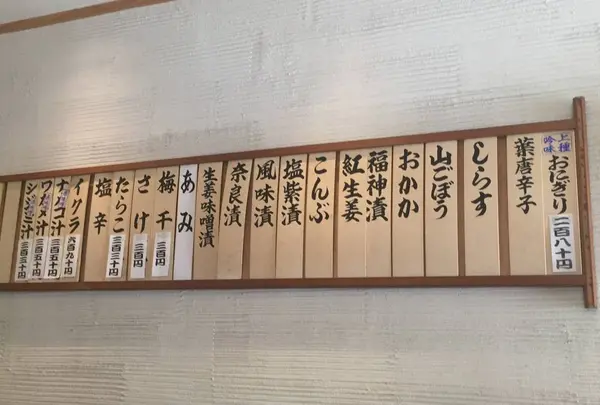 上種
吟味
おにぎり
二百八十円
葉唐辛子
しらす
山ごぼう
おかか
福神漬
紅生姜
こんぶ
塩紫漬
風味漬
奈良漬
生姜味噌漬
あみ
梅干
三百円
さけ
たらこ
三百三十円
塩辛
イクラ
六百九十円
ナメコ汁
三百五十円
ワカメ汁
三百五十円
シジミ汁
三百三十円